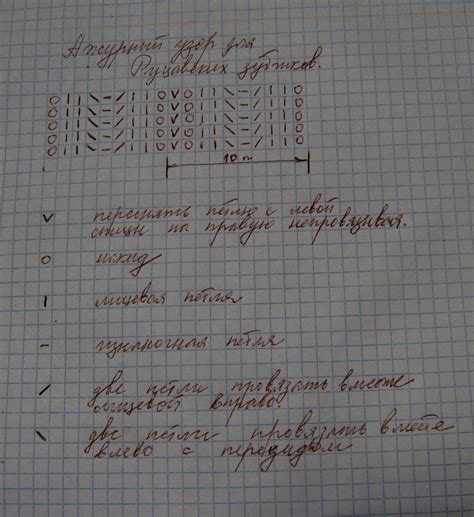 Ажурный узор для
Руцавских зубчиков.
O I I \ - / I I O V O I I \ - / I I O
O I I \ - / I I O V O I I \ - / I I O
O I I \ - / I I O V O I I \ - / I I O
O I I \ - / I I O V O I I \ - / I I O
O I I \ - / I I O V O I I \ - / I I O
10 п.
V переснять петлю с левой
спицы на правую непровязывая.
O накид
I лицевая петля
- изнаночная петля
/ две петли провязать вместе
лицевой вправо.
\ две петли провязать вместе
влево с перекидом